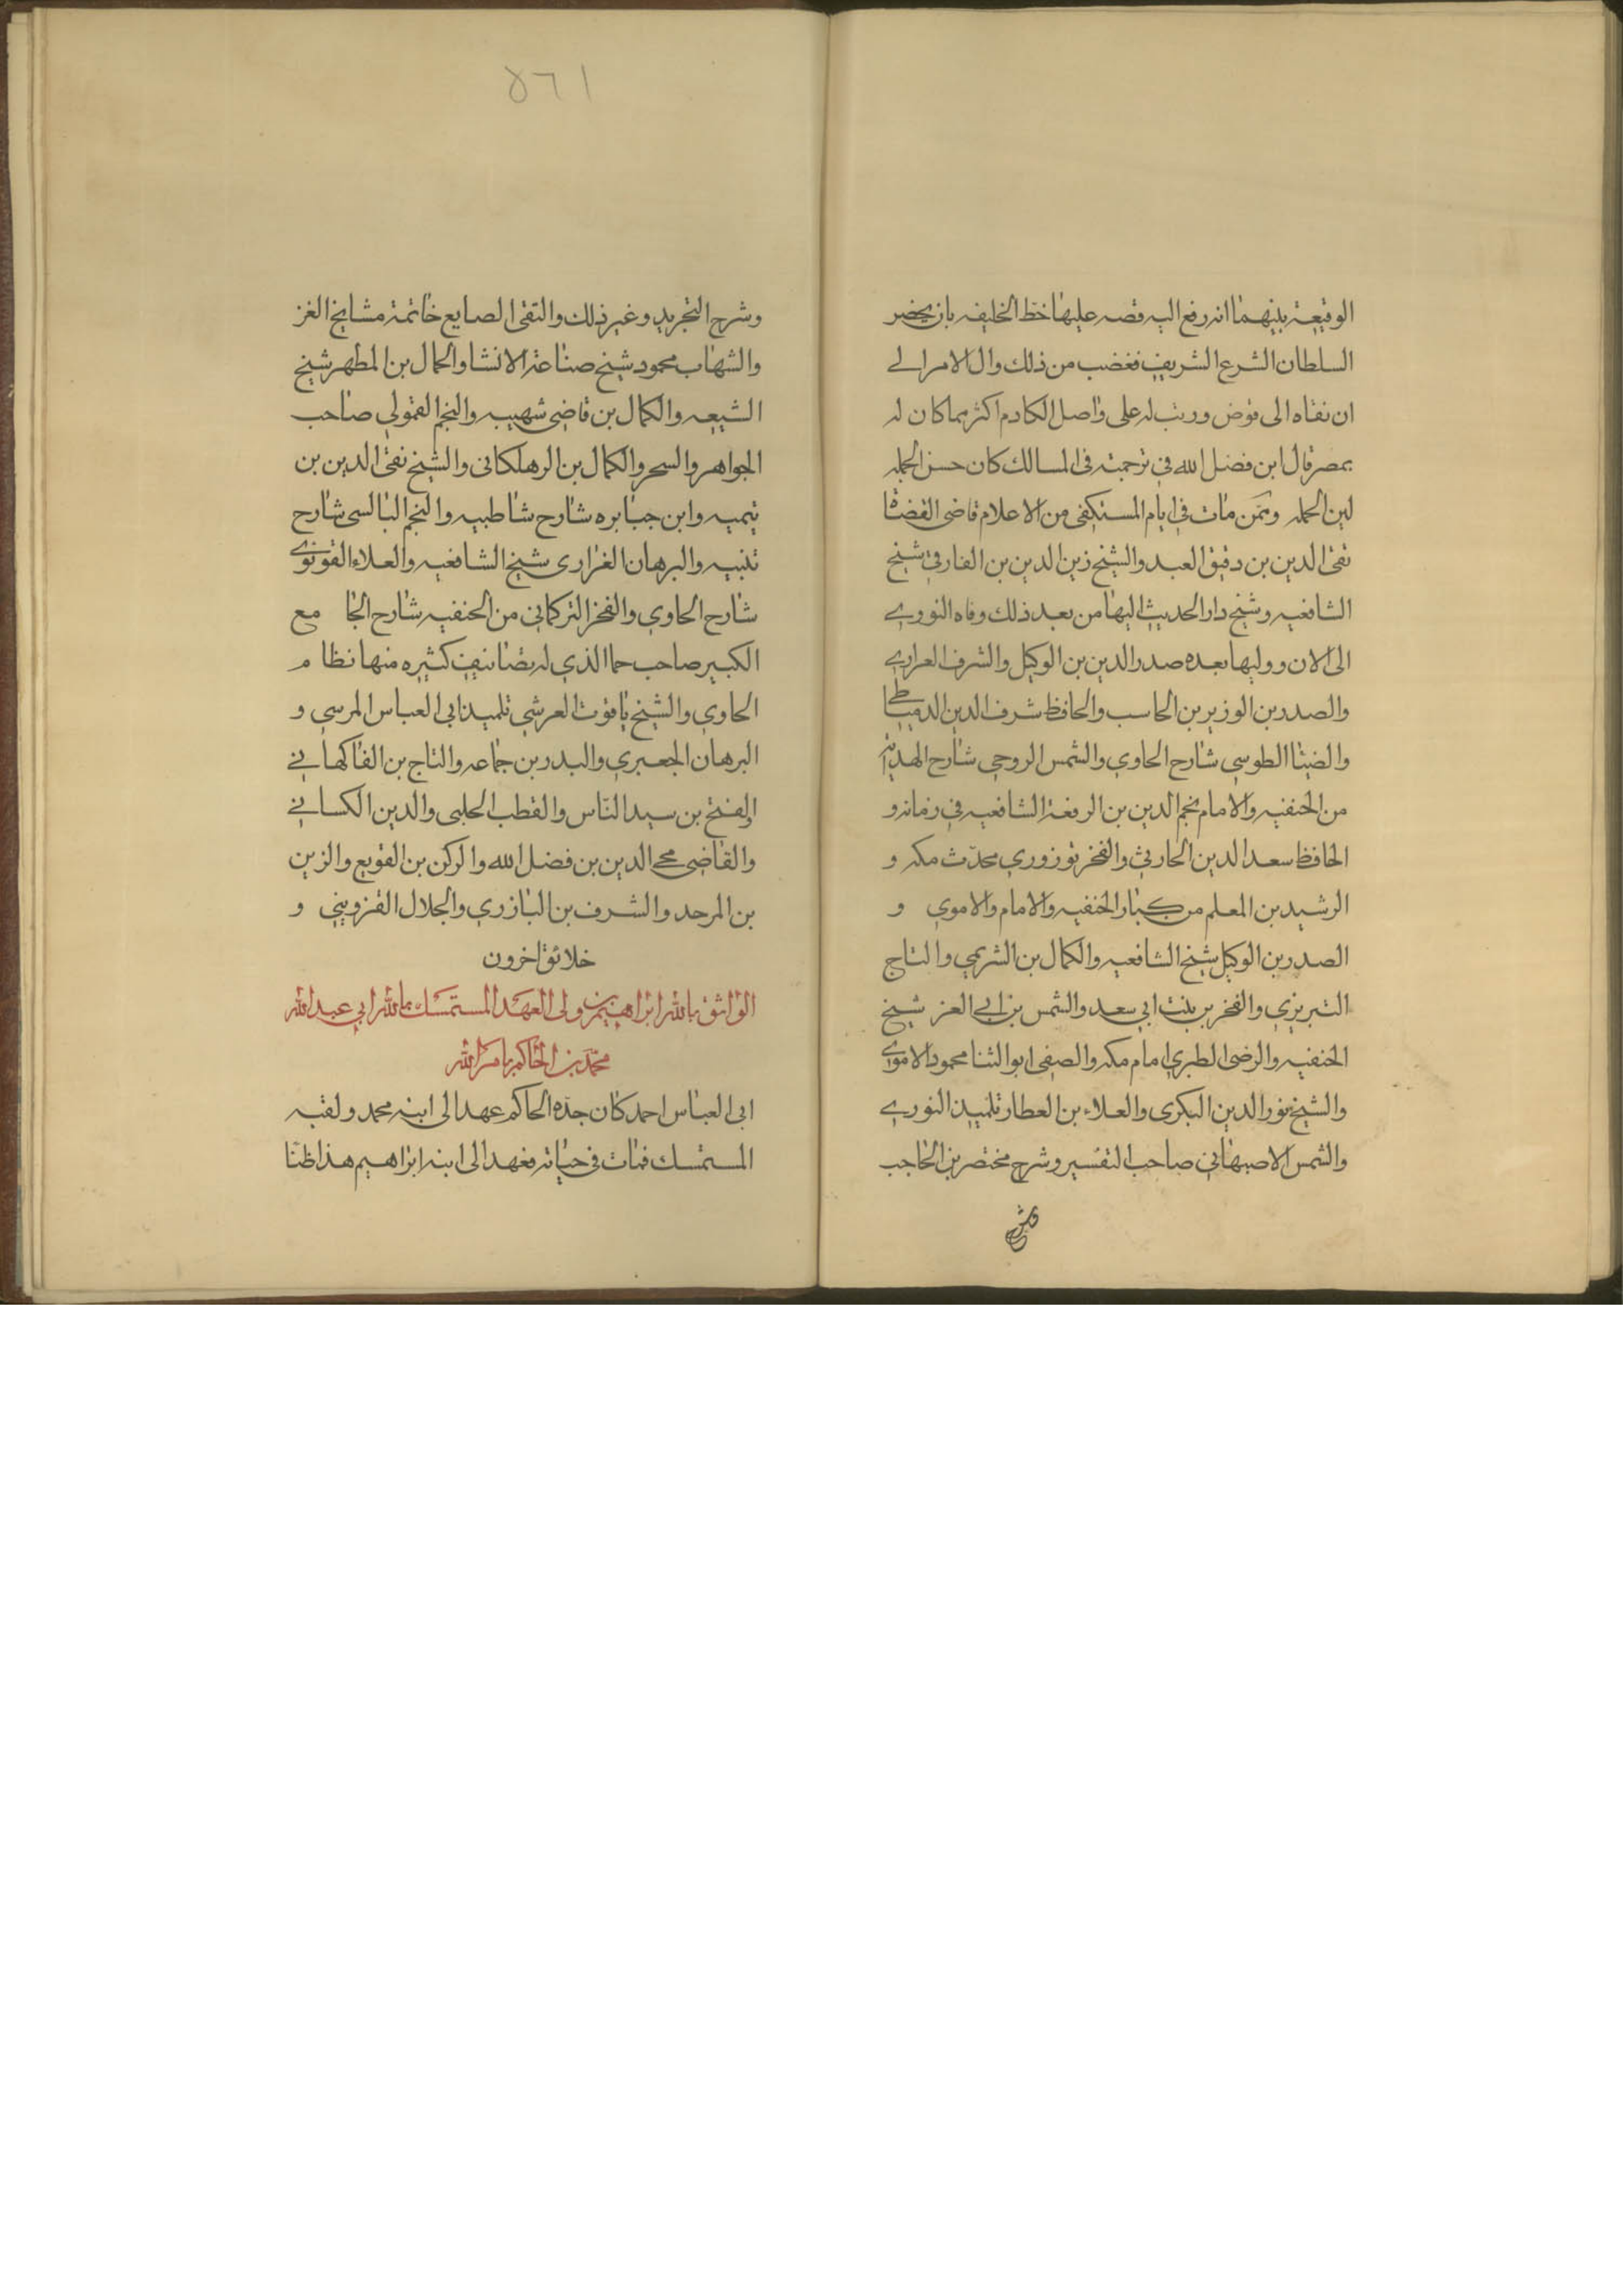 الوقيعة بينهما انه رفع اليه قصه عليها خط الخليفه بان يحضر
السلطان الشرع الشريف فغضب من ذلك وال الامر الى
ان نفاه الى قوض ورتب له على واصل الكادم اكثر مما كان له
بمصر قال ابن فضل الله في ترجمته فى المسالك كان حسن الجمله
لين الحمله وممن مات في ايام المستكفى من الاعلام قاضى القضاة
تقى الدين بن دقيق العبد والشيخ زين الدين بن الفارقي شيخ
الشافعيه وشيخ دار الحديث اليها من بعد ذلك وفاه النووى
الى الان ووليها بعده صدر الدين بن الوكيل والشرف العرارى
والصدر بن الوزير بن الحاسب والحافظ شرف الدين الدمياطى
والضيا الطوسي شارح الحاوي والشمس الروجي شارح الهدايه
من الحنفيه والامام نجم الدين بن الرفعة الشافعيه في زمانه و
الحافظ سعد الدين الحارثي والفخر توزوري محدّث مكه و
الرشيد بن المعلم من كبار الحنفيه والامام والاموي و
الصدر بن الوكيل شيخ الشافعيه والكمال بن الشريمي والتاج
التبريزي والفخر بن بنت ابي سعد والشمس بن ابى العز شيخ
الحنفيه والرضى الطبري امام مكه والصفى ابو الثنا محمود الاموى
والشيخ نور الدين البكرى والعلاء بن العطار تلميذ النووى
والشمس الاصبهاني صاحب التفسير وشرح مختصر بن الحاجب
وشرح
١٦٥
وشرح التجريد وغير ذلك والتقى الصايع خاتمة مشايخ الغز
والشهاب محمود شيخ صناعة الانشا والجمال بن المطهر شيخ
الشيعه والكمال بن قاضي شهيبه والنجم القمولي صاحب
الجواهر والسحر والكمال بن الرهلكانى والشيخ تقى الدين بن
تيميه وابن جبابره شارح شاطبيه والنجم البالسى شارح
تنبيه والبرهان الغزارى شيخ الشافعيه والعلاء القونوى
شارح الحاوي والفخر التركماني من الحنفيه شارح الجا مع
الكبير صاحب حما الذي له تصانيف كثيره منها نظا م
الحاوي والشيخ ياقوت العرشي تلميذ ابى العباس المرسي و
البرهان الجعبري والبدر بن جماعه والتاج بن الفاكهانى
والفتح بن سيد النّاس والقطب الحلبى والدين الكسانى
والقاضى محى الدين بن فضل الله والركن بن القويع والزين
بن المرحد والشرف بن البازري والجلال القزويني و
خلائق اخرون
الواثق بالله ابراهيم بن ولى العهد المستمسك بالله ابي عبد الله
محمد بن الحاكم بامر الله
ابى العباس احمد كان جدّه الحاكم عهد الى ابنه محمد ولقبه
المستمسك فمات فى حياته فعهد الى ابنه ابراهيم هذا ظنّا